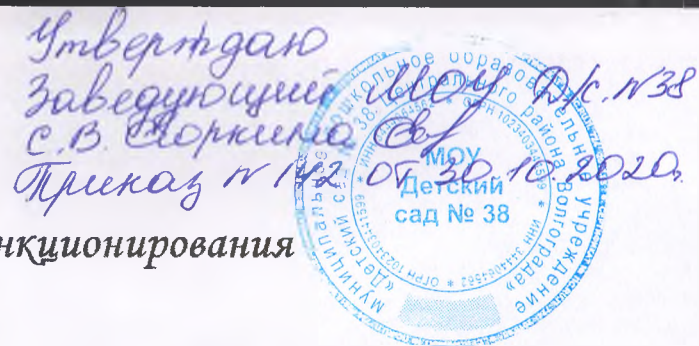 Утверждаю
Заведующий МОУ Д/с. N38
С.В.
Приказ N 142 от 30.10.2020г.
нкционирования
МОУ
Детский
сад № 38
Муниципальное дошкольное образовательное учреждение
«Детский сад № 38 Центрального района Волгограда»